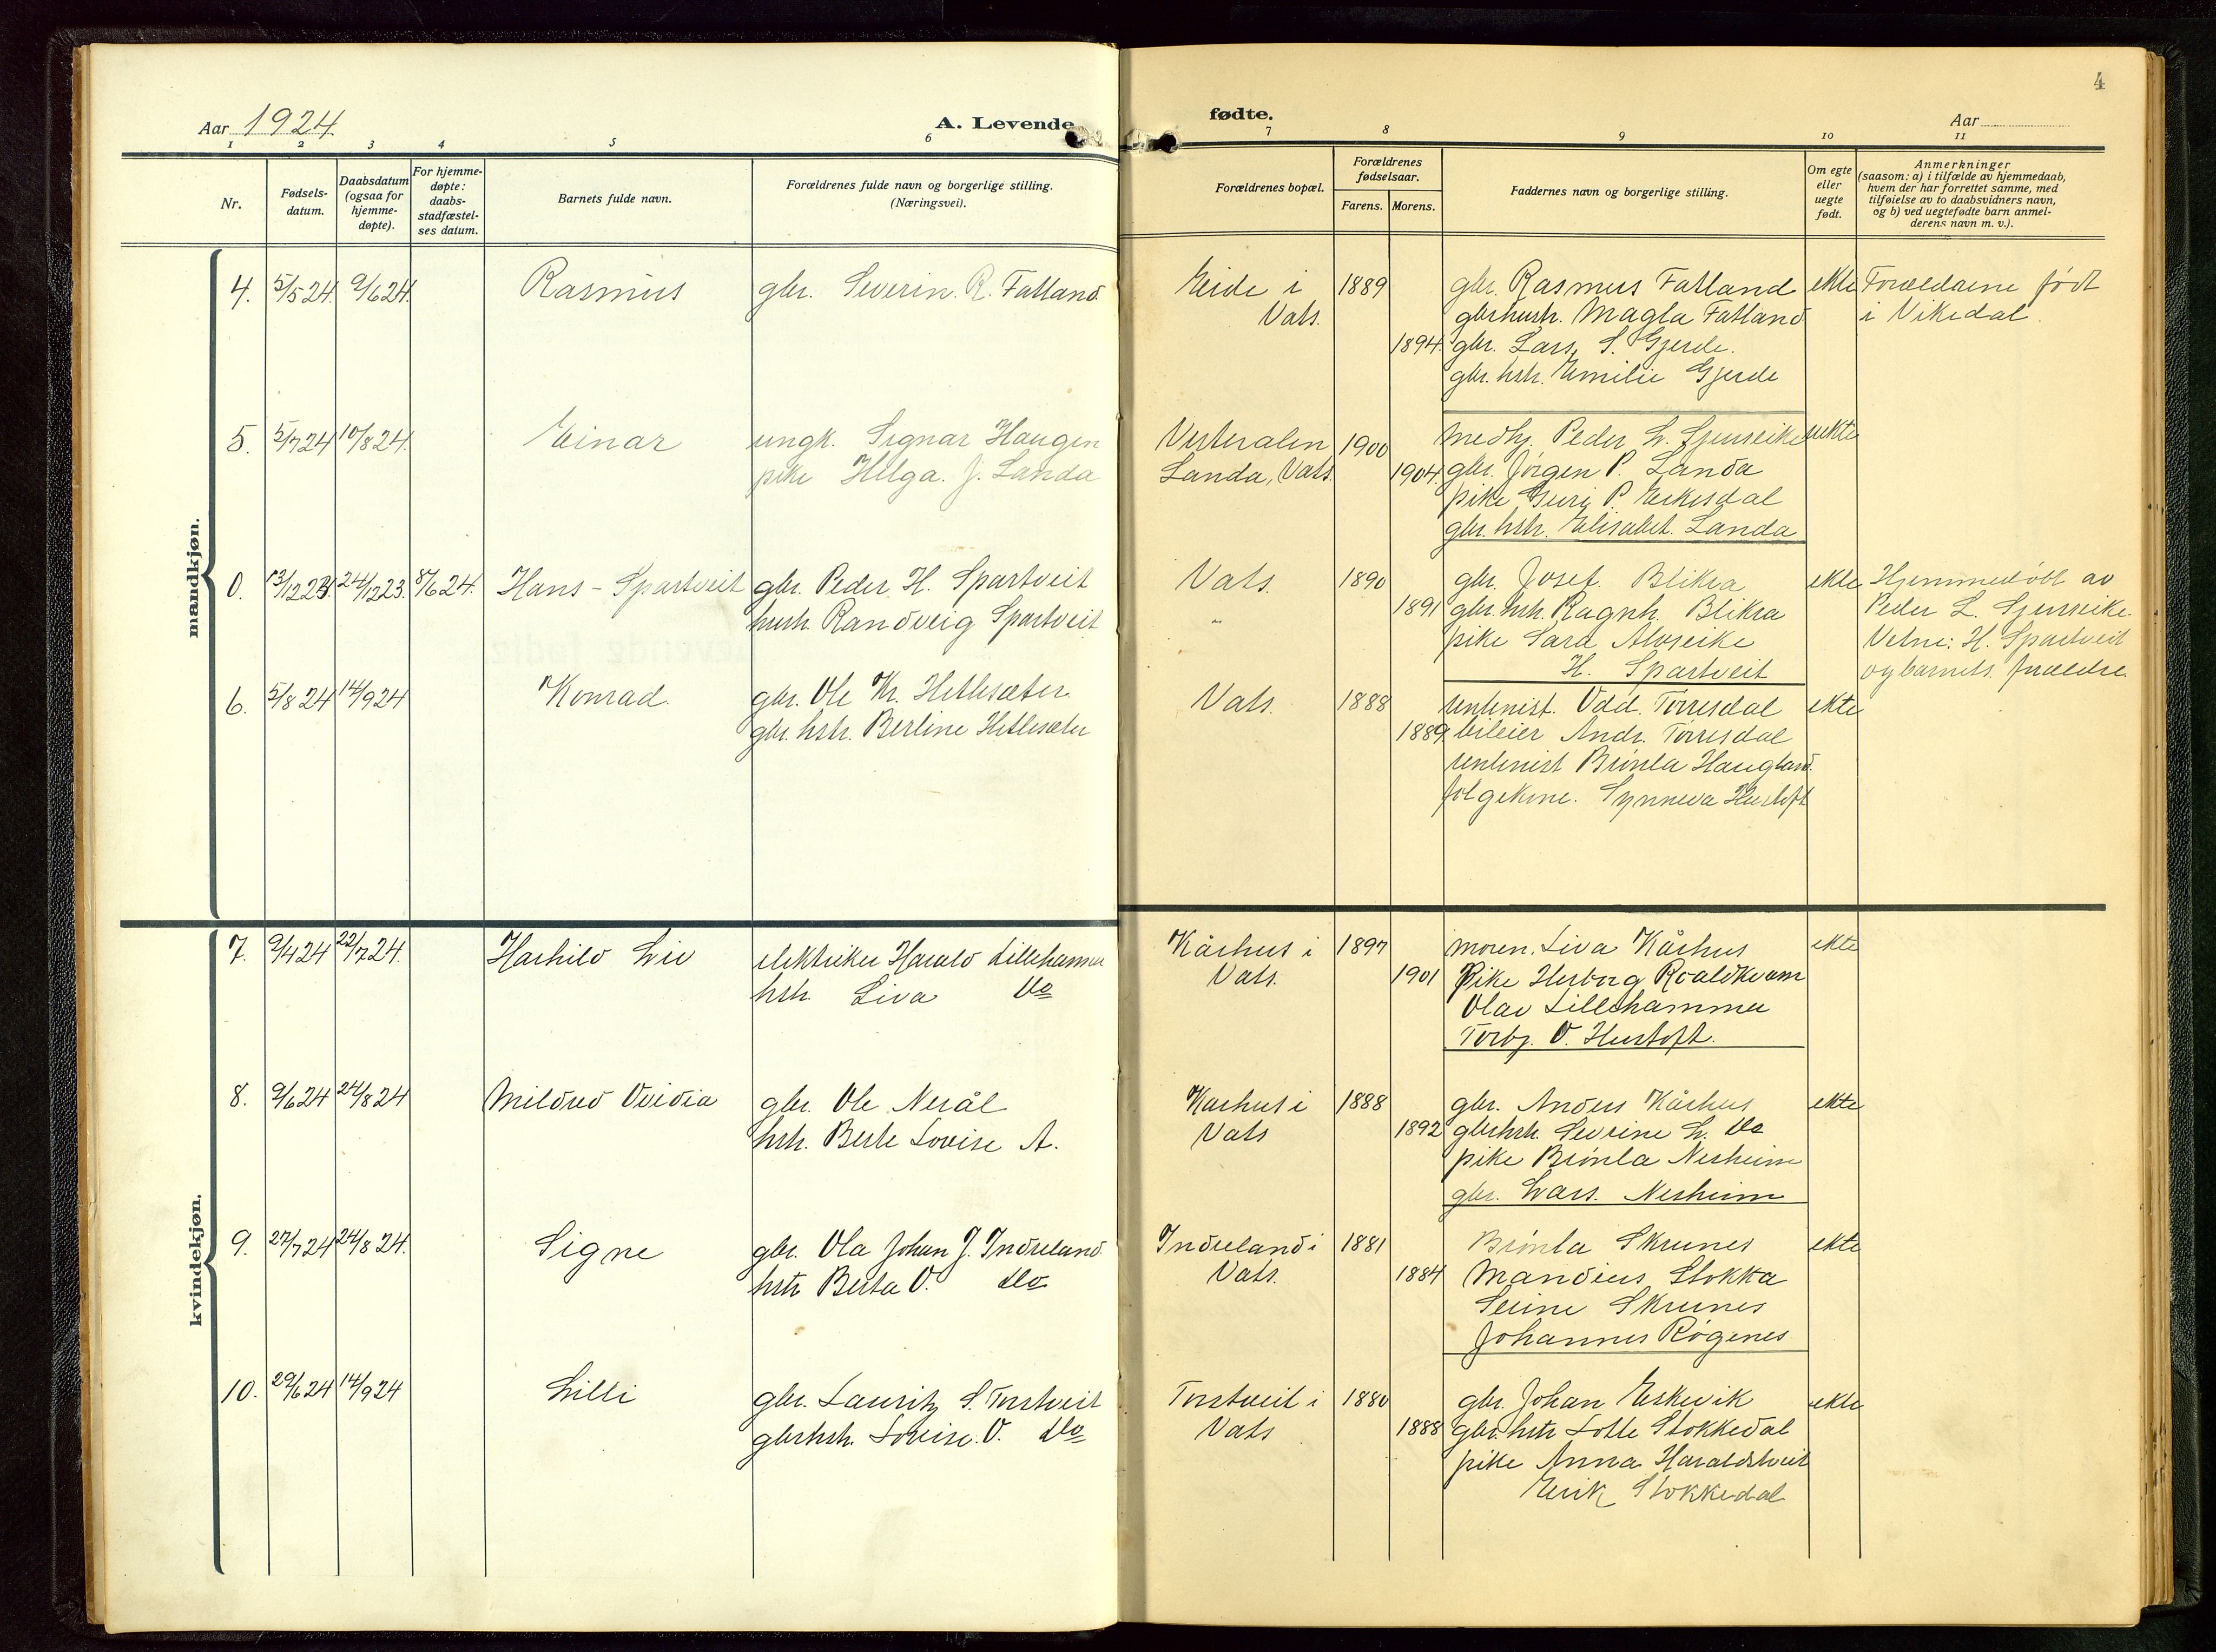 4
Aar 1924.
A. Levende
fødte.
Aar
1 2 3 4 5 6 7 8 9 10 11
Nr.
Fødsels-
datum.
Daabsdatum
(ogsaa for
hjemme-
døpte).
For hjemme-
døpte:
daabs-
stadfæstel-
ses datum.
Barnets fulde navn.
Forældrenes fulde navn og borgerlige stilling.
(Næringsvei).
Forældrenes bopæl.
Forældrenes
fødselsaar.
Farens. Morens.
Faddernes navn og borgerlige stilling.
Om egte
eller
uegte
født.
Anmerkninger
(saasom: a) i tilfælde av hjemmedaab,
hvem der har forrettet samme, med
tilføielse av to daabsvidners navn,
og b) ved uegtefødte barn anmel-
derens navn m. v.).
mandkjøn.
4. 5/5 24. 9/6 24. Rasmus gbr. Severin. R. Fatland. Eide i 1889 gbr. Rasmus Fatland ekte Foreldrene født
Vats. gbrhustr. Magla Fatland i Vikedal.
1894. gbr. Lars. S. Gjerde.
gbr. hstr. Emilie Gjerde
5. 5/7 24 10/8 24. Einar ungk. Signar Haugen Vesteralen 1900 medhj. Peder L. Sjurseike uekte
pike Helga. J. Landa Landa, Vats. 1904. gbr. Jörgen P. Landa
pike Guri P. Eikesdal
gbr. hstr. Elisabet. Landa
0. 13/12 23. 24/12 23. 8/6 24. Hans - Spartveit gbr. Peder. H. Spartveit Vats. 1890 gbr. Josef. Blikra ekte Hjemmedöbt av
hustr. Randveig Spartveit " 1891 gbr. hstr. Ragnh. Blikra Peder L. Sjurseike.
pike Sara Alvseike Vitne: H. Spartveit
H. Spartveit og barnets foreldre
6. 5/8 24 14/9 24 Konrad. gbr. Ole Kr. Hetlesæter. Vats. 1888 rentenist. Odd. Törresdal ekte
gbr. hstr. Berline Hetlesæter 1889 bileier Andr. Törresdal
rentenist Brönla Haugland.
folgekone. Synneva Hustoft
kvindekjøn.
7. 9/4 24 22/7 24. Harhild Liv elektriker Harald Lillehammer Kårhus i 1897 moren. Liva Kårhus ekte
hstr. Liva do Vats. 1901 Pike Herborg Roaldkvam
Olav Lillehammer
Torbj. O. Hustoft.
8. 9/6 24 24/8 24 Mildred Ovidia gbr. Ole Nerål Kårhus i 1888 gbr. Anders Kårhus ekte
hstr. Berte Lovise A. Vats 1892 gbrhstr. Severine L. do
pike Brönla Nesheim
gbr. Lars. Nesheim
9. 27/7 24 24/8 24. Signe gbr. Ola Johan J. Indreland Indreland i 1881 Brönla Skrunes ekte
hstr Berta O. do Vats. 1884 Mandius Stokka
Serine Skrunes
Johannes Rögenes
10. 29/6 24 14/9 24 Lilli gbr. Lauritz S. Torstveit Torstveit i 1880 gbr. Johan Eskevik ekte
gbrhstr. Lovise. O. do Vats 1888 gbr. hstr Lotte Stokkedal
pike Anna Haraldstveit
Eirik Stokkedal